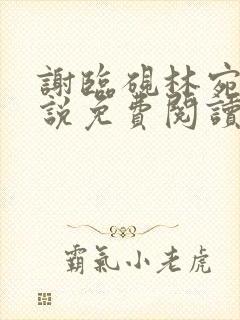 謝臨硯林宛
說免費閱讀
霸氣小老虎